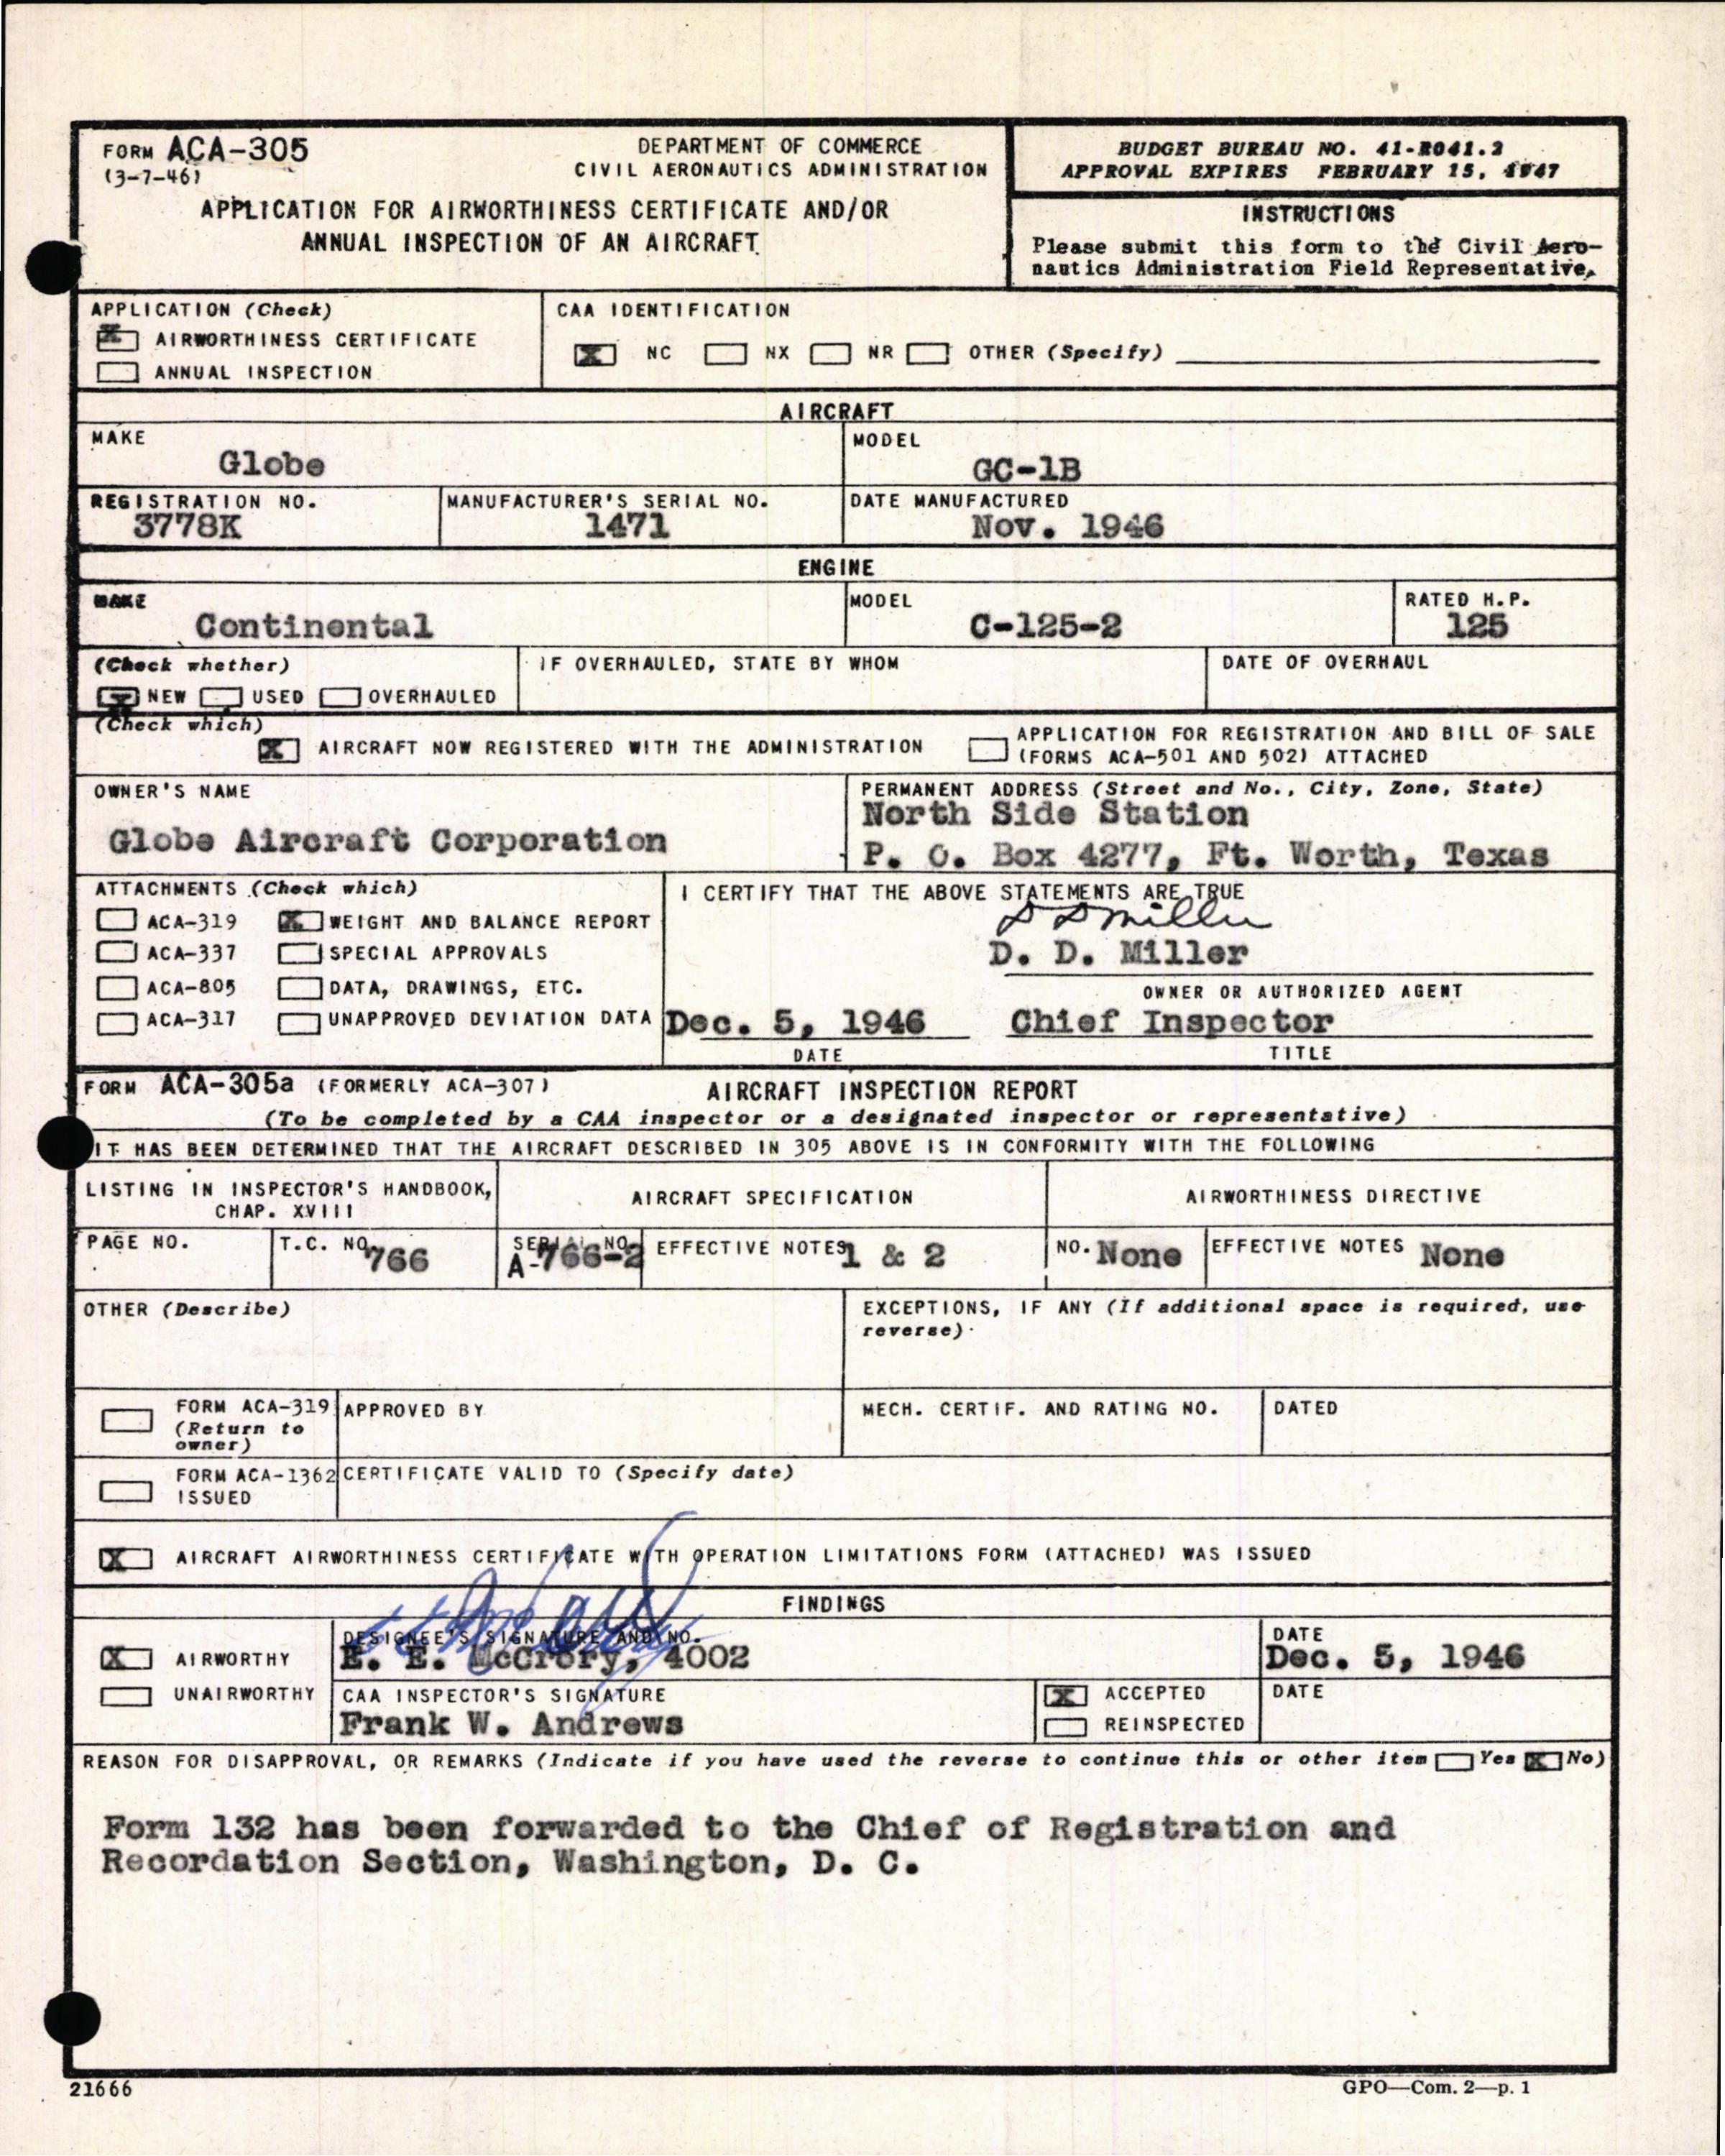 FORM ACA-305
(3-7-46)
DEPARTMENT OF COMMERCE
CIVIL AERONAUTICS ADMINISTRATION
APPLICATION FOR AIRWORTHINESS CERTIFICATE AND/OR
ANNUAL INSPECTION OF AN AIRCRAFT
BUDGET BUREAU NO. 41-R041.2
APPROVAL EXPIRES FEBRUARY 15, 1947
INSTRUCTIONS
Please submit this form to the Civil Aero-
nautics Administration Field Representative.
APPLICATION (Check)
X AIRWORTHINESS CERTIFICATE
ANNUAL INSPECTION
CAA IDENTIFICATION
X NC NX NR OTHER (Specify)
AIRCRAFT
MAKE
Globe
MODEL
GC-1B
REGISTRATION NO.
3778K
MANUFACTURER'S SERIAL NO.
1471
DATE MANUFACTURED
Nov. 1946
ENGINE
MAKE
Continental
MODEL
C-125-2
RATED H.P.
125
(Check whether)
X NEW USED OVERHAULED
IF OVERHAULED, STATE BY WHOM
DATE OF OVERHAUL
(Check which)
X AIRCRAFT NOW REGISTERED WITH THE ADMINISTRATION
APPLICATION FOR REGISTRATION AND BILL OF SALE
(FORMS ACA-501 AND 502) ATTACHED
OWNER'S NAME
Globe Aircraft Corporation
PERMANENT ADDRESS (Street and No., City, Zone, State)
North Side Station
P. O. Box 4277, Ft. Worth, Texas
ATTACHMENTS (Check which)
ACA-319 X WEIGHT AND BALANCE REPORT
ACA-337 SPECIAL APPROVALS
ACA-805 DATA, DRAWINGS, ETC.
ACA-317 UNAPPROVED DEVIATION DATA
I CERTIFY THAT THE ABOVE STATEMENTS ARE TRUE
D D Miller
D. D. Miller
OWNER OR AUTHORIZED AGENT
Dec. 5, 1946 Chief Inspector
DATE TITLE
FORM ACA-305a (FORMERLY ACA-307) AIRCRAFT INSPECTION REPORT
(To be completed by a CAA inspector or a designated inspector or representative)
IT HAS BEEN DETERMINED THAT THE AIRCRAFT DESCRIBED IN 305 ABOVE IS IN CONFORMITY WITH THE FOLLOWING
LISTING IN INSPECTOR'S HANDBOOK,
CHAP. XVIII
AIRCRAFT SPECIFICATION
AIRWORTHINESS DIRECTIVE
PAGE NO.
T.C. NO. 766
SERIAL NO.
A-766-2
EFFECTIVE NOTES 1 & 2
NO. None
EFFECTIVE NOTES None
OTHER (Describe)
EXCEPTIONS, IF ANY (If additional space is required, use
reverse)
FORM ACA-319
(Return to
owner)
APPROVED BY
MECH. CERTIF. AND RATING NO.
DATED
FORM ACA-1362
ISSUED
CERTIFICATE VALID TO (Specify date)
X AIRCRAFT AIRWORTHINESS CERTIFICATE WITH OPERATION LIMITATIONS FORM (ATTACHED) WAS ISSUED
FINDINGS
X AIRWORTHY
UNAIRWORTHY
DESIGNEE'S SIGNATURE AND NO.
E. E. McCrory, 4002
DATE
Dec. 5, 1946
CAA INSPECTOR'S SIGNATURE
Frank W. Andrews
X ACCEPTED
REINSPECTED
DATE
REASON FOR DISAPPROVAL, OR REMARKS (Indicate if you have used the reverse to continue this or other item Yes X No)
Form 132 has been forwarded to the Chief of Registration and
Recordation Section, Washington, D. C.
21666
GPO—Com. 2—p. 1